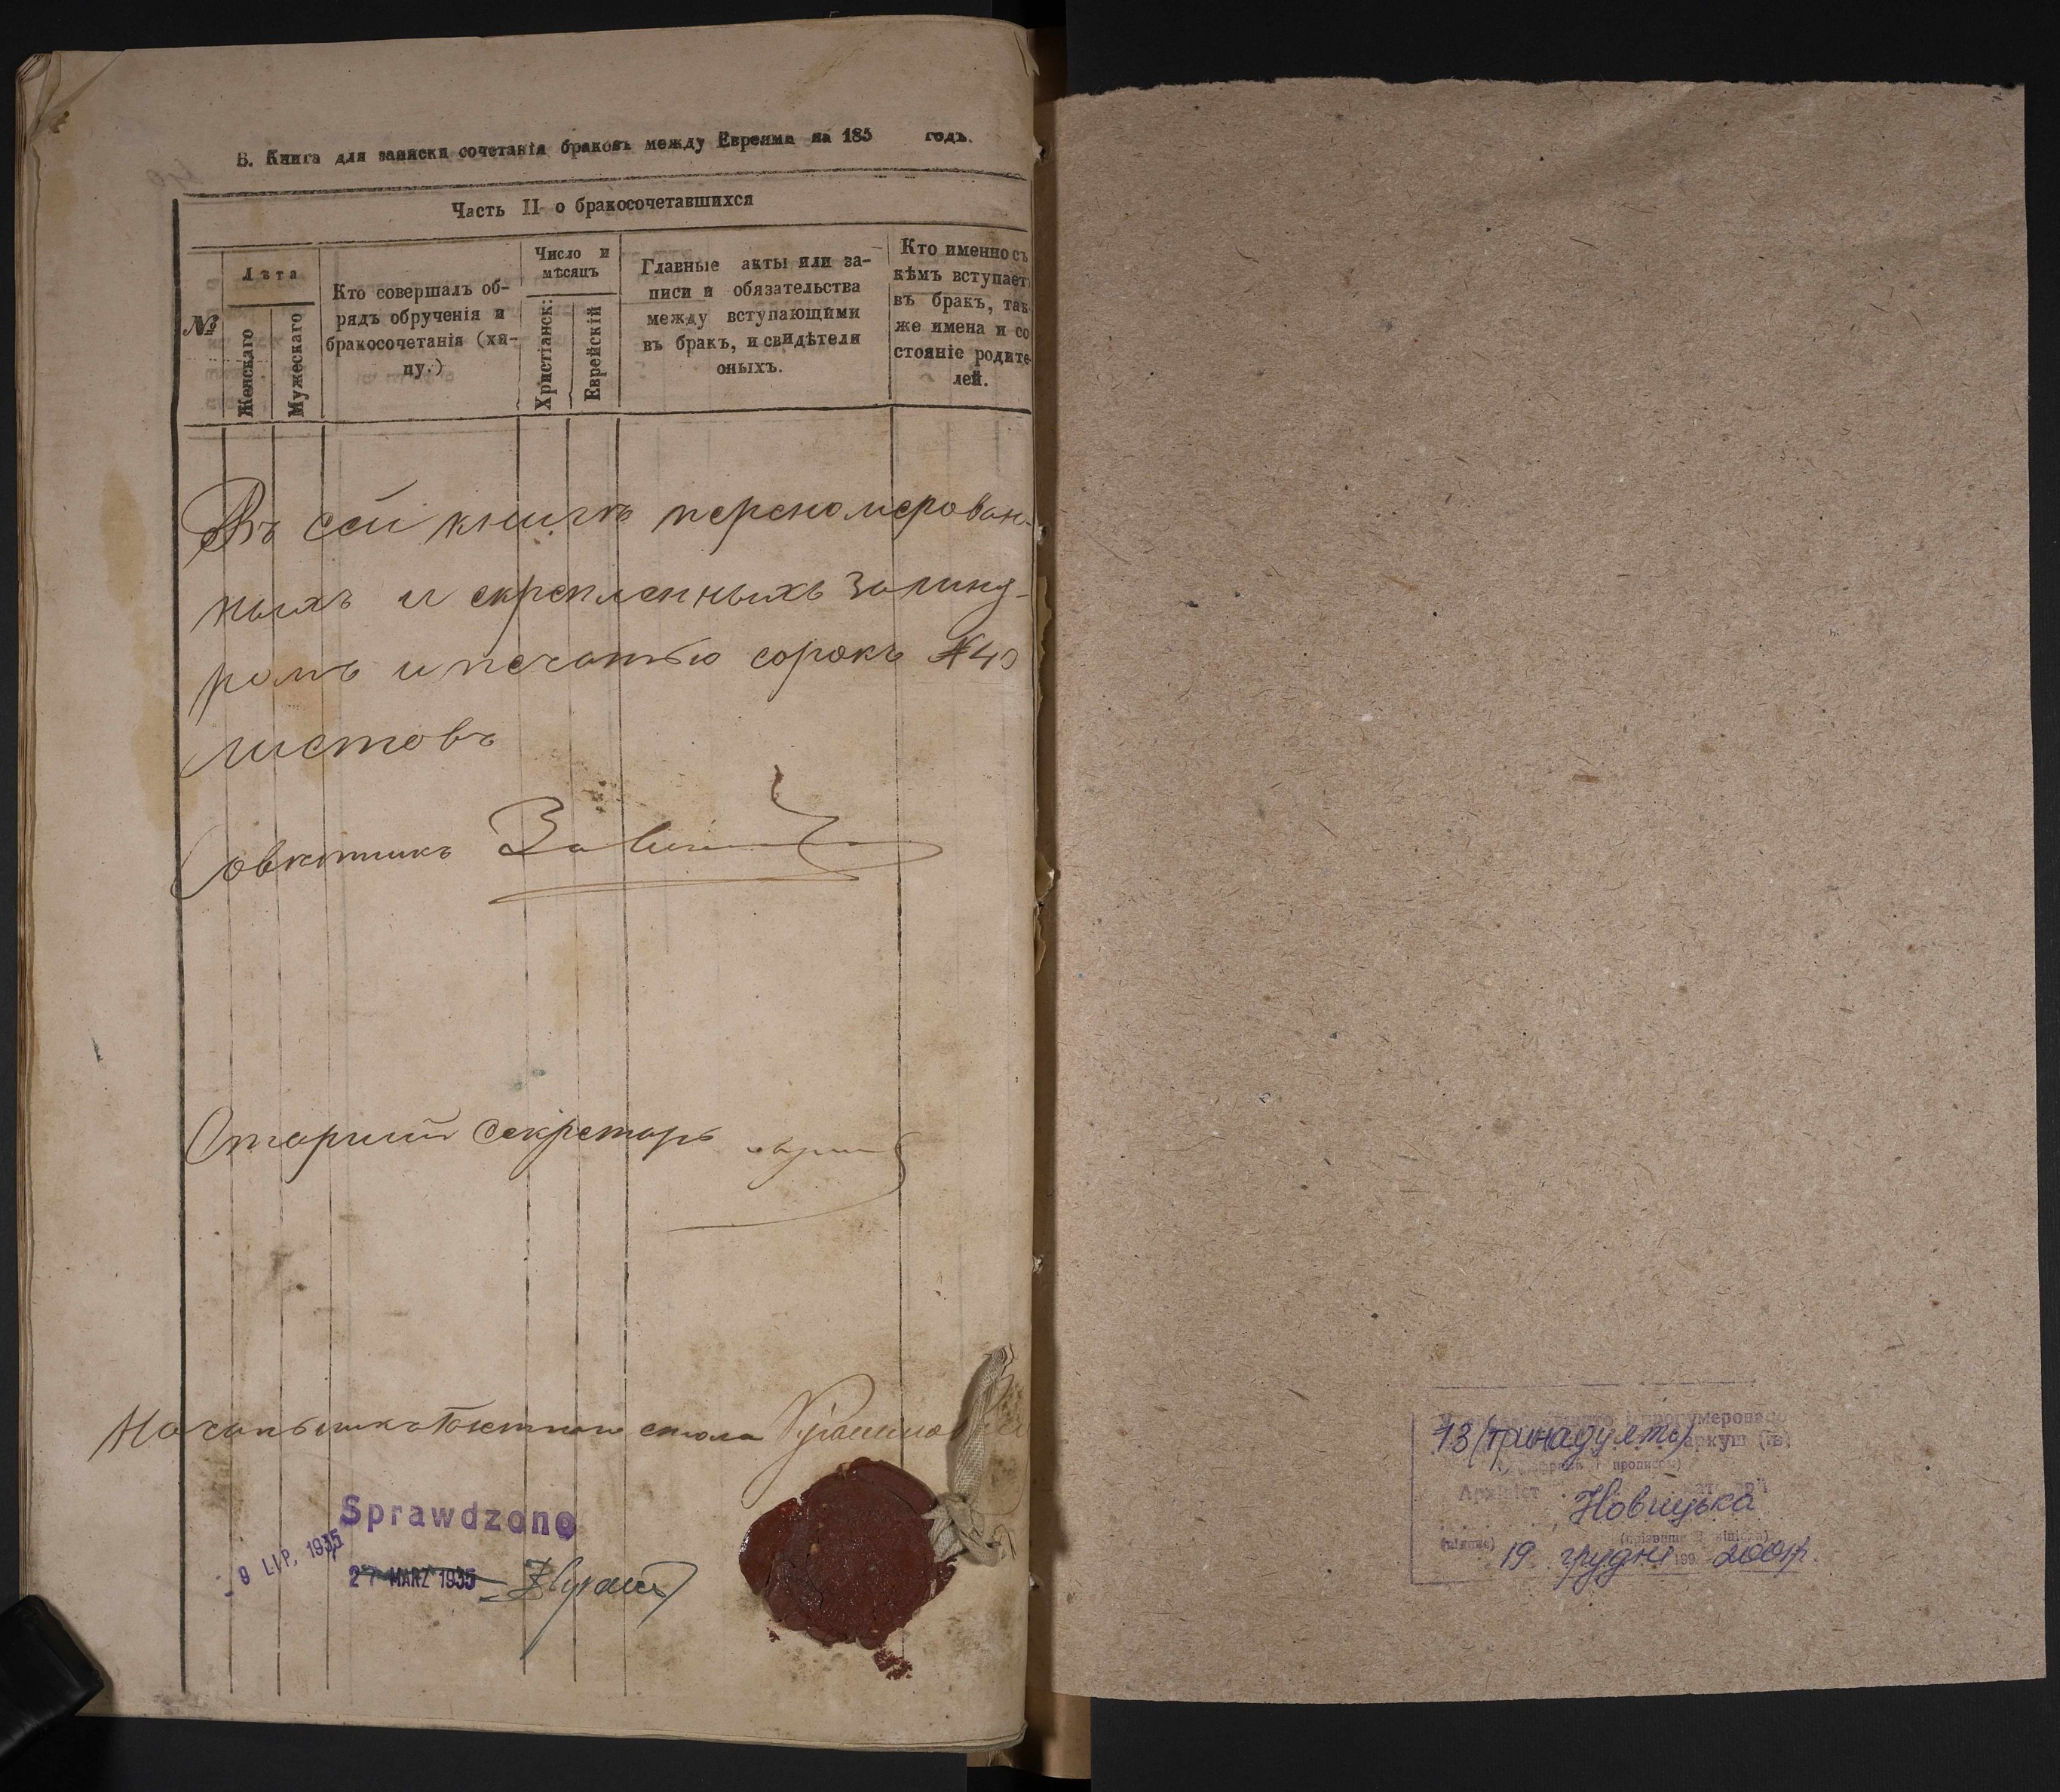 В. Книга для записки сочетанія браковъ между Евреима на 185 годъ.
Часть II о бракосочетавшихся
№
Лѣта
Женскаго
Мужескаго
Кто совершалъ об-
рядъ обрученія и
бракосочетанія (хи-
пу.)
Число и
мѣсяцъ
Христіанск:
Еврейскій
Главные акты или за-
писи и обязательства
между вступающими
въ бракъ, и свидѣтели
оныхъ.
Кто именно съ
кѣмъ вступает
въ бракъ, так
же имена и со
стояніе родите
лей.
Въ сей книгѣ переномерован-
ныхъ и скрепленныхъ за шну-
ромъ и печатью сорокъ №40
листовъ
Совѣтникъ
Старшій секретарь
Начальникъ стола
Sprawdzono
9 LIP. 1935
27 MARZ 1935
13 (тринадцять)
аркуш (ів)
прописом)
Архівіст
Новицька
19 грудня 199 2001р.